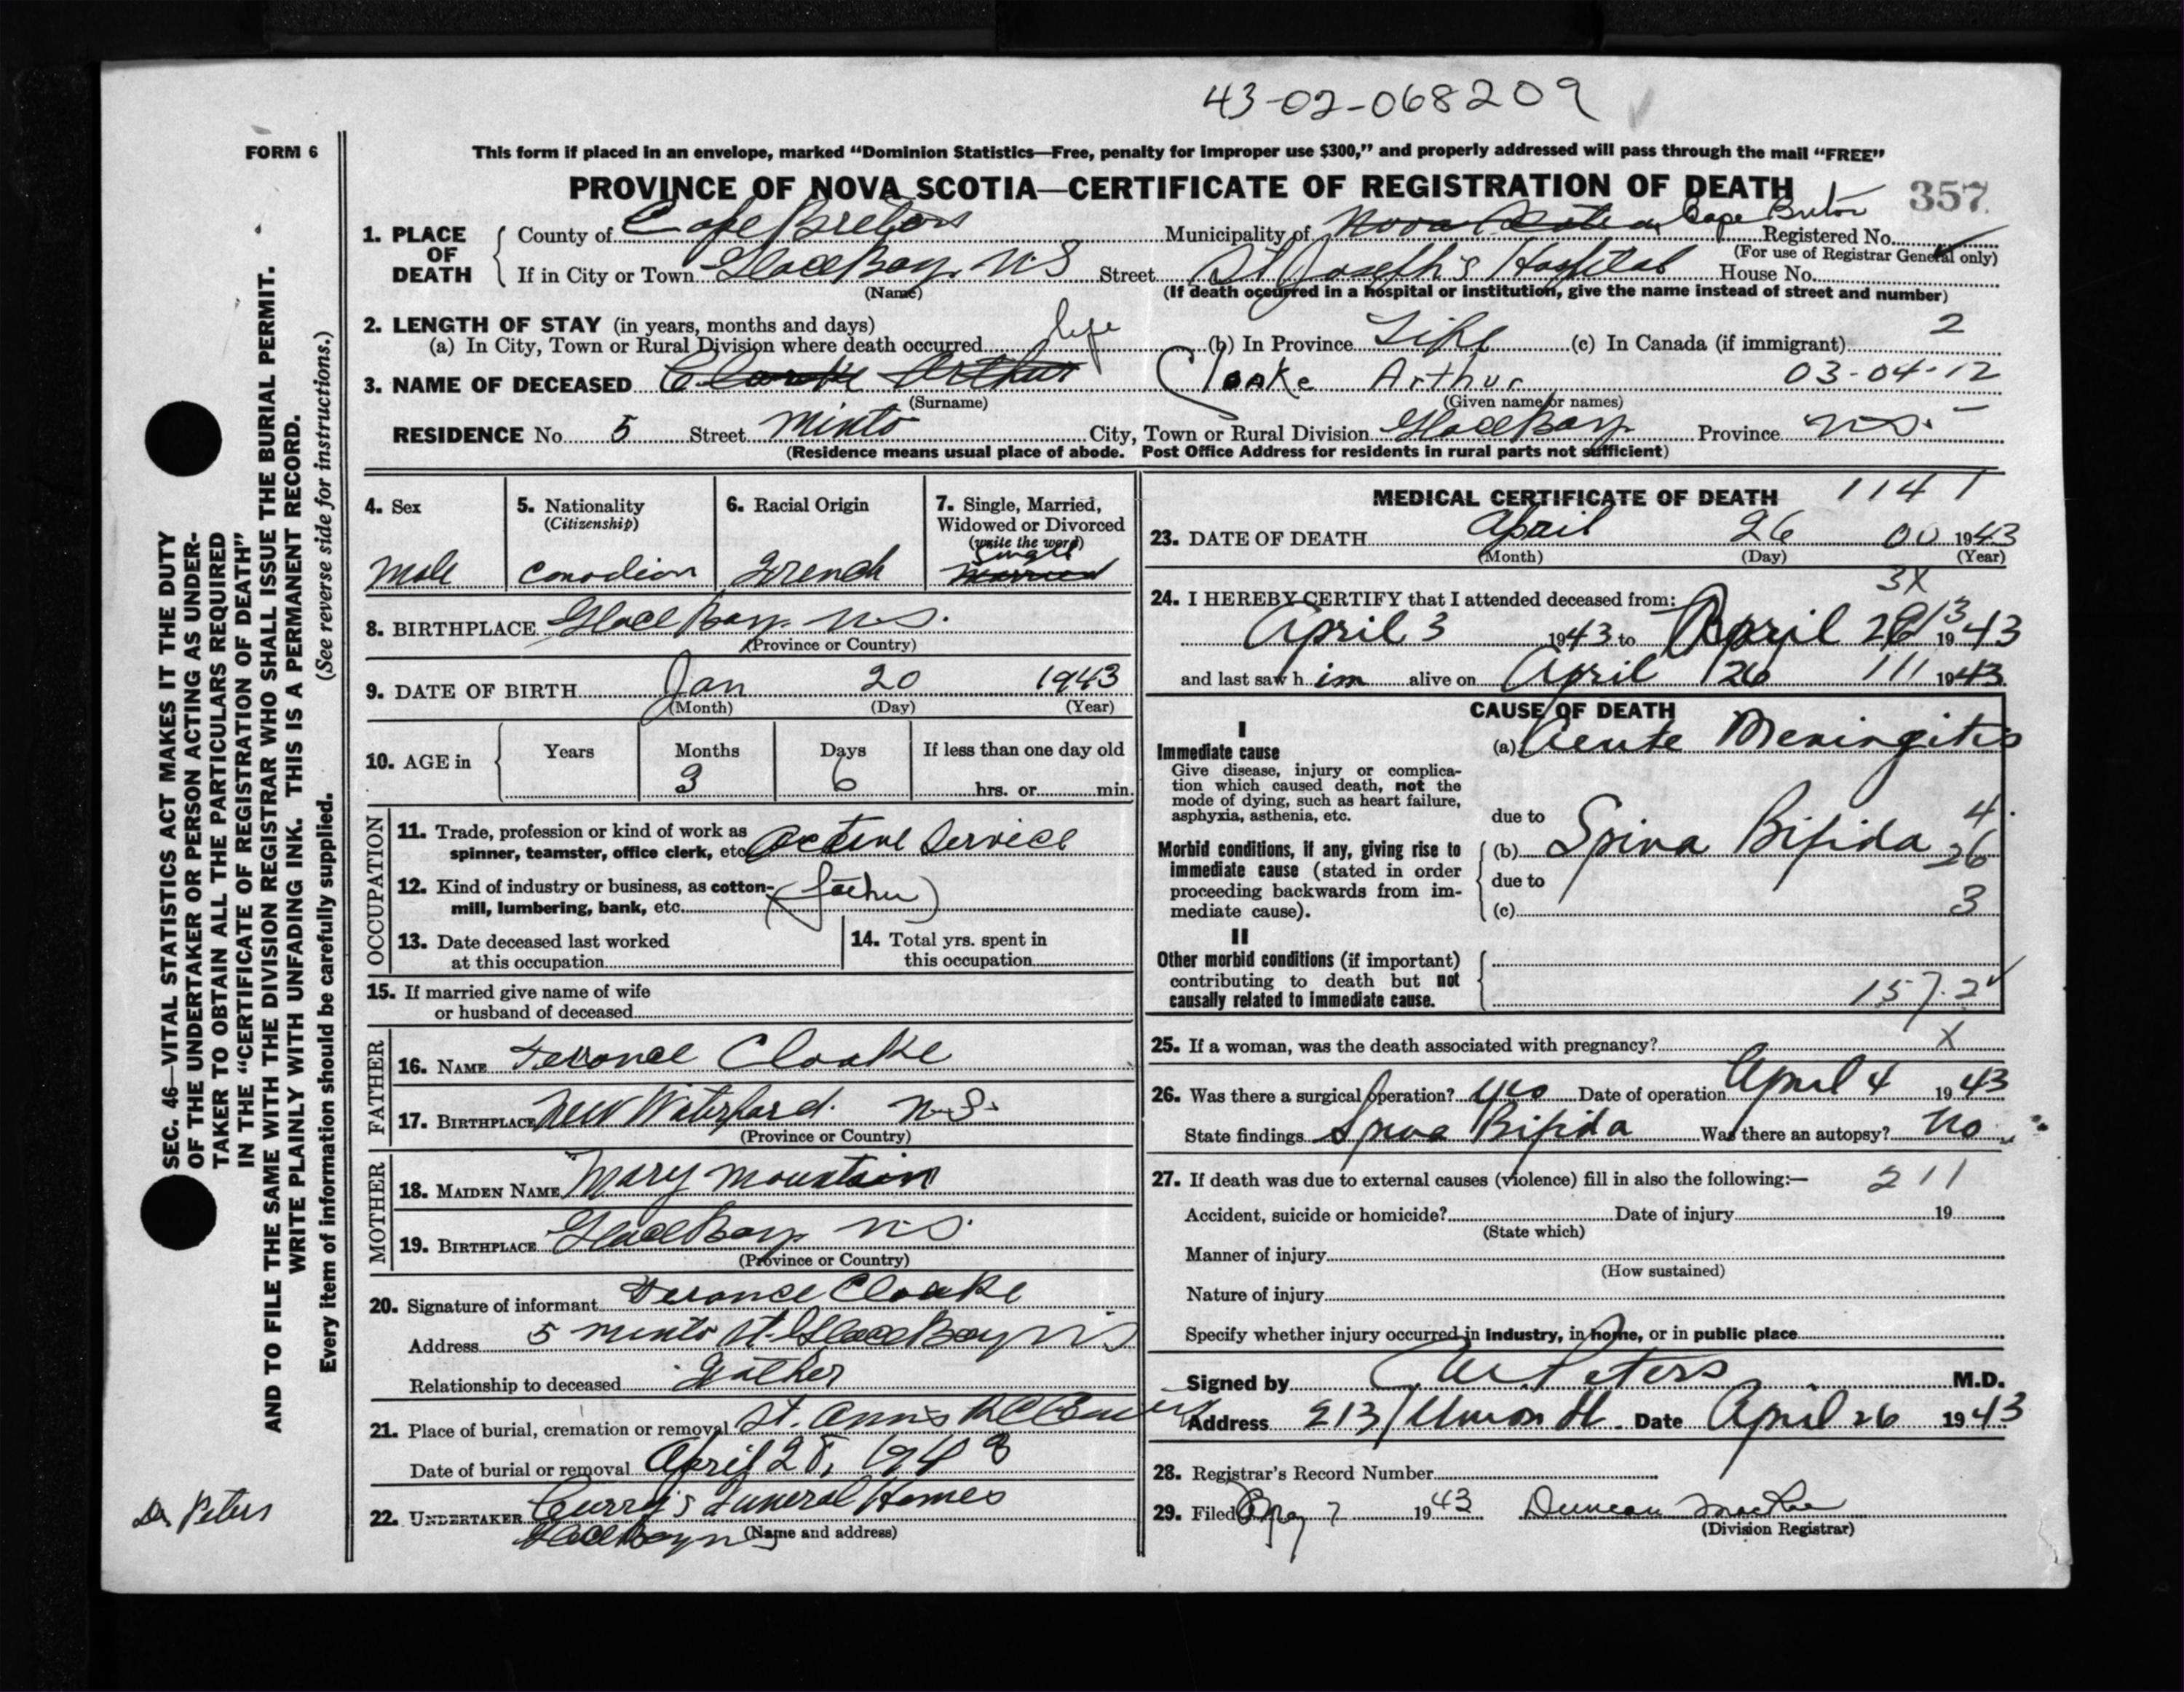 43-02-068209
FORM 6
This form if placed in an envelope, marked “Dominion Statistics—Free, penalty for improper use $300,” and properly addressed will pass through the mail “FREE”
PROVINCE OF NOVA SCOTIA—CERTIFICATE OF REGISTRATION OF DEATH
357
1. PLACE OF DEATH County of Cape Breton Municipality of Nova Scotia Cape Breton Registered No.
(For use of Registrar General only)
If in City or Town Glace Bay N.S Street St Joseph's Hospital House No.
(Name) (If death occurred in a hospital or institution, give the name instead of street and number)
2. LENGTH OF STAY (in years, months and days) 2
(a) In City, Town or Rural Division where death occurred life (b) In Province Life (c) In Canada (if immigrant)
3. NAME OF DECEASED Clarke Arthur Cloake Arthur 03-04-12
(Surname) (Given name or names)
RESIDENCE No. 5 Street Minto City, Town or Rural Division Glace Bay Province N.S.
(Residence means usual place of abode. Post Office Address for residents in rural parts not sufficient)
4. Sex 5. Nationality 6. Racial Origin 7. Single, Married,
(Citizenship) Widowed or Divorced
(write the word)
single
Male Canadian French Married
8. BIRTHPLACE Glace Bay N.S.
(Province or Country)
9. DATE OF BIRTH Jan 20 1943
(Month) (Day) (Year)
10. AGE in Years Months Days If less than one day old
3 6 hrs. or min.
OCCUPATION
11. Trade, profession or kind of work as
spinner, teamster, office clerk, etc. Active Service
12. Kind of industry or business, as cotton-
mill, lumbering, bank, etc. (father)
13. Date deceased last worked 14. Total yrs. spent in
at this occupation this occupation
15. If married give name of wife
or husband of deceased
FATHER
16. NAME Terrance Cloake
17. BIRTHPLACE New Waterford. N.S.
(Province or Country)
MOTHER
18. MAIDEN NAME Mary Mountain
19. BIRTHPLACE Glace Bay N.S.
(Province or Country)
20. Signature of informant Terance Cloake
Address 5 Minto St. Glace Bay N.S
Relationship to deceased Father
21. Place of burial, cremation or removal St. Ann's R C Cemetery
Date of burial or removal April 28, 1943
22. UNDERTAKER Curry's Funeral Homes
Glace Bay NS (Name and address)
MEDICAL CERTIFICATE OF DEATH 1141
23. DATE OF DEATH April 26 00 1943
(Month) (Day) (Year)
3X
24. I HEREBY CERTIFY that I attended deceased from:
April 3 1943 to April 26 1943
and last saw him alive on April 26 111 1943
CAUSE OF DEATH
I
Immediate cause (a) Acute Meningitis
Give disease, injury or complica-
tion which caused death, not the
mode of dying, such as heart failure,
asphyxia, asthenia, etc. due to 4.
Morbid conditions, if any, giving rise to (b) Spina Bifida 26
immediate cause (stated in order
proceeding backwards from im- due to
mediate cause). (c) 3
II
Other morbid conditions (if important)
contributing to death but not
causally related to immediate cause. 157.2
25. If a woman, was the death associated with pregnancy? X
26. Was there a surgical operation? Yes Date of operation April 4 1943
State findings Spina Bifida Was there an autopsy? No
27. If death was due to external causes (violence) fill in also the following:— 211
Accident, suicide or homicide? Date of injury 19
(State which)
Manner of injury
(How sustained)
Nature of injury
Specify whether injury occurred in industry, in home, or in public place
Signed by Peters M.D.
Address 213 Union St. Date April 26 1943
28. Registrar's Record Number
29. Filed May 7 1943 Duncan
(Division Registrar)
SEC. 46—VITAL STATISTICS ACT MAKES IT THE DUTY
OF THE UNDERTAKER OR PERSON ACTING AS UNDER-
TAKER TO OBTAIN ALL THE PARTICULARS REQUIRED
IN THE “CERTIFICATE OF REGISTRATION OF DEATH”
AND TO FILE THE SAME WITH THE DIVISION REGISTRAR WHO SHALL ISSUE THE BURIAL PERMIT.
WRITE PLAINLY WITH UNFADING INK. THIS IS A PERMANENT RECORD.
Every item of information should be carefully supplied. (See reverse side for instructions.)
Dr Peters